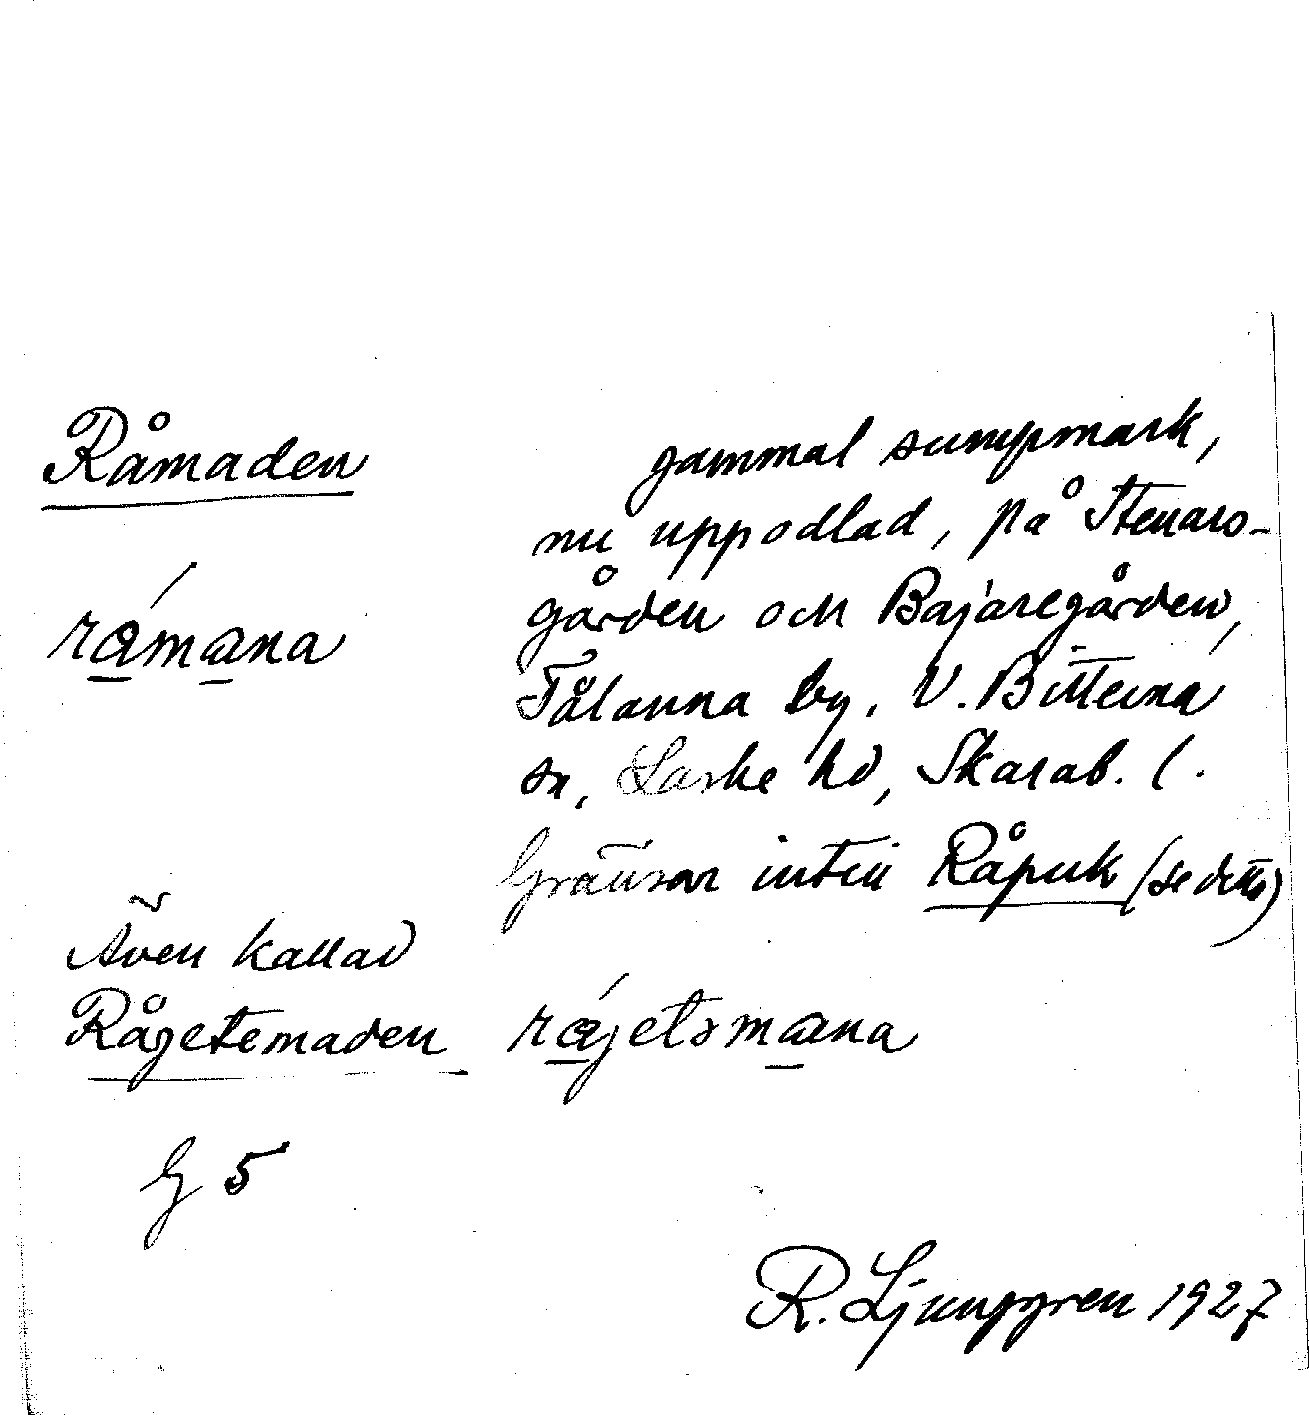 Råmaden
gammal sumpmark,
nu uppodlad, på Stenars-
gården och Bajaregården,
råmana
Tålanna by, V. Bitterna
sn, Laske hd, Skarab. l.
Gränsar intill Råpuk (se detta)
Även kallad
Rågetemaden råjetsmana
G 5
R. Ljunggren 1927